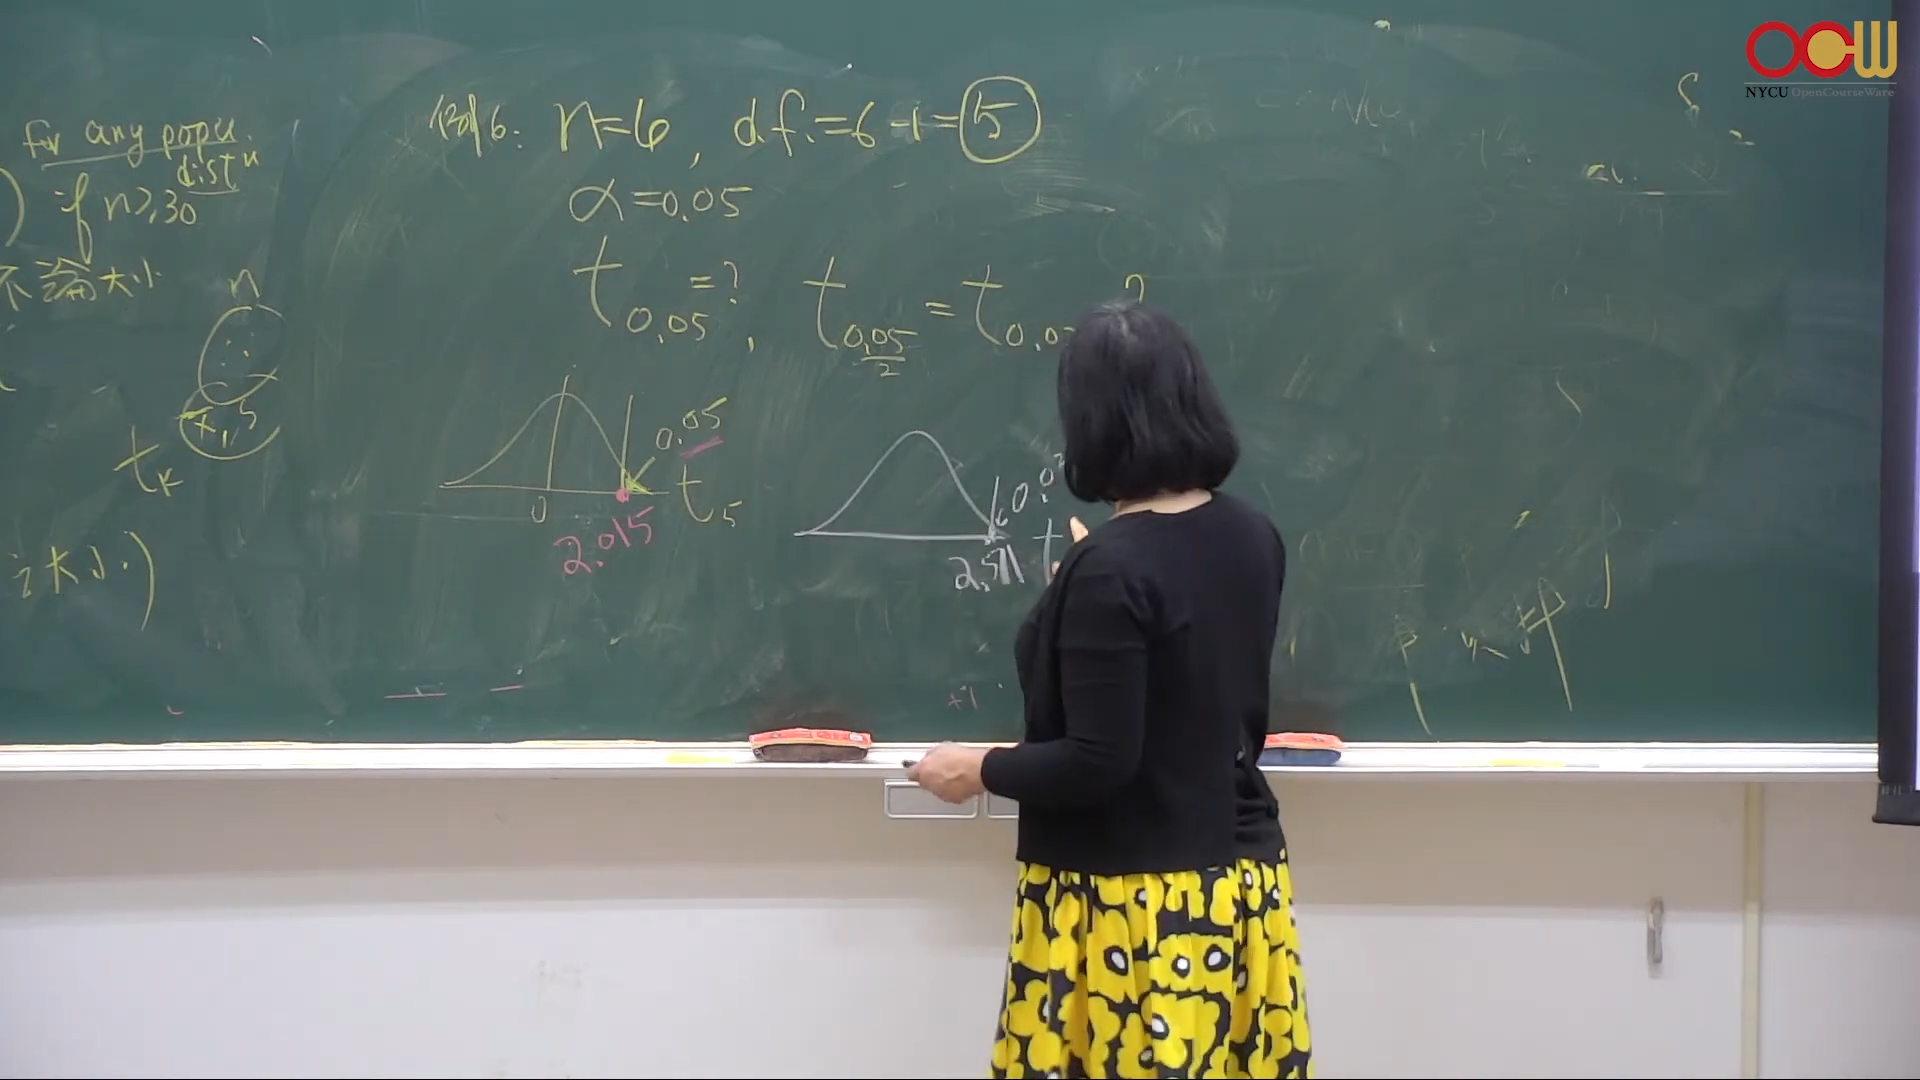 OCW
NYCU OpenCourseWare
for any popu.
dist n
if n≥30
不論大小
n
x, s
tₖ
例6: n=6, d.f.=6-1=5
α=0.05
t₀.₀₅=?, t₀.₀₅/₂ = t₀.₀ ?
0.05
0
2.015
t₅
0.0
2.571 t
+1